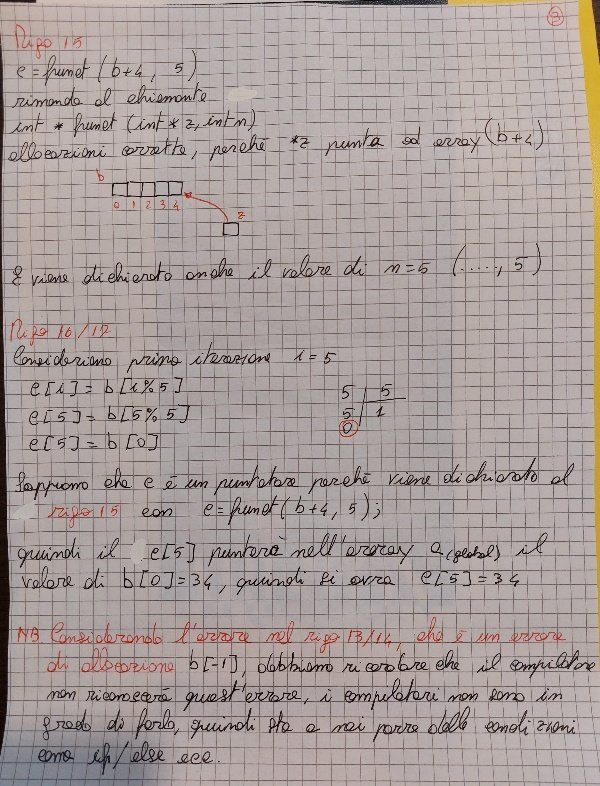 3
Rigo 15
c = funct (b+4, 5)
rimanda al chiamante
int * funct (int * z, int n)
allocazioni corrette, perchè *z punta ad array (b+4)
b
0 1 2 3 4
z
E viene dichiarato anche il valore di n=5 (...., 5)
Rigo 16/17
Consideriamo prima iterazione i = 5
c[i] = b[i%5]
5 5
c[5] = b[5%5]
5 1
c[5] = b[0]
0
Sappiamo che c è un puntatore perchè viene dichiarato al
rigo 15 con c = funct (b+4, 5);
quindi il c[5] punterà nell'array a (global) il
valore di b[0] = 34, quindi si avrà c[5] = 34
NB Considerando l'errore nel rigo 13/14, che è un errore
di allocazione b[-1], dobbiamo ricordare che il compilatore
non riconoscerà quest'errore, i compilatori non sono in
grado di farlo, quindi sta a noi porre delle condizioni
come if/else ecc.